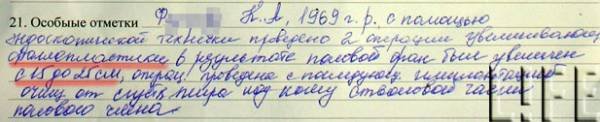 21. Особые отметки Ф К.А, 1969 г.р. с помощью
эндоскопической техники проведено 2 операции увеличивающей
фаллопластики в результате половой орган был увеличен
с 15 до 25 см, операц. проведена с последующ. имплантацией
очищ от сгуст жира под кожу стволовой части
полового члена